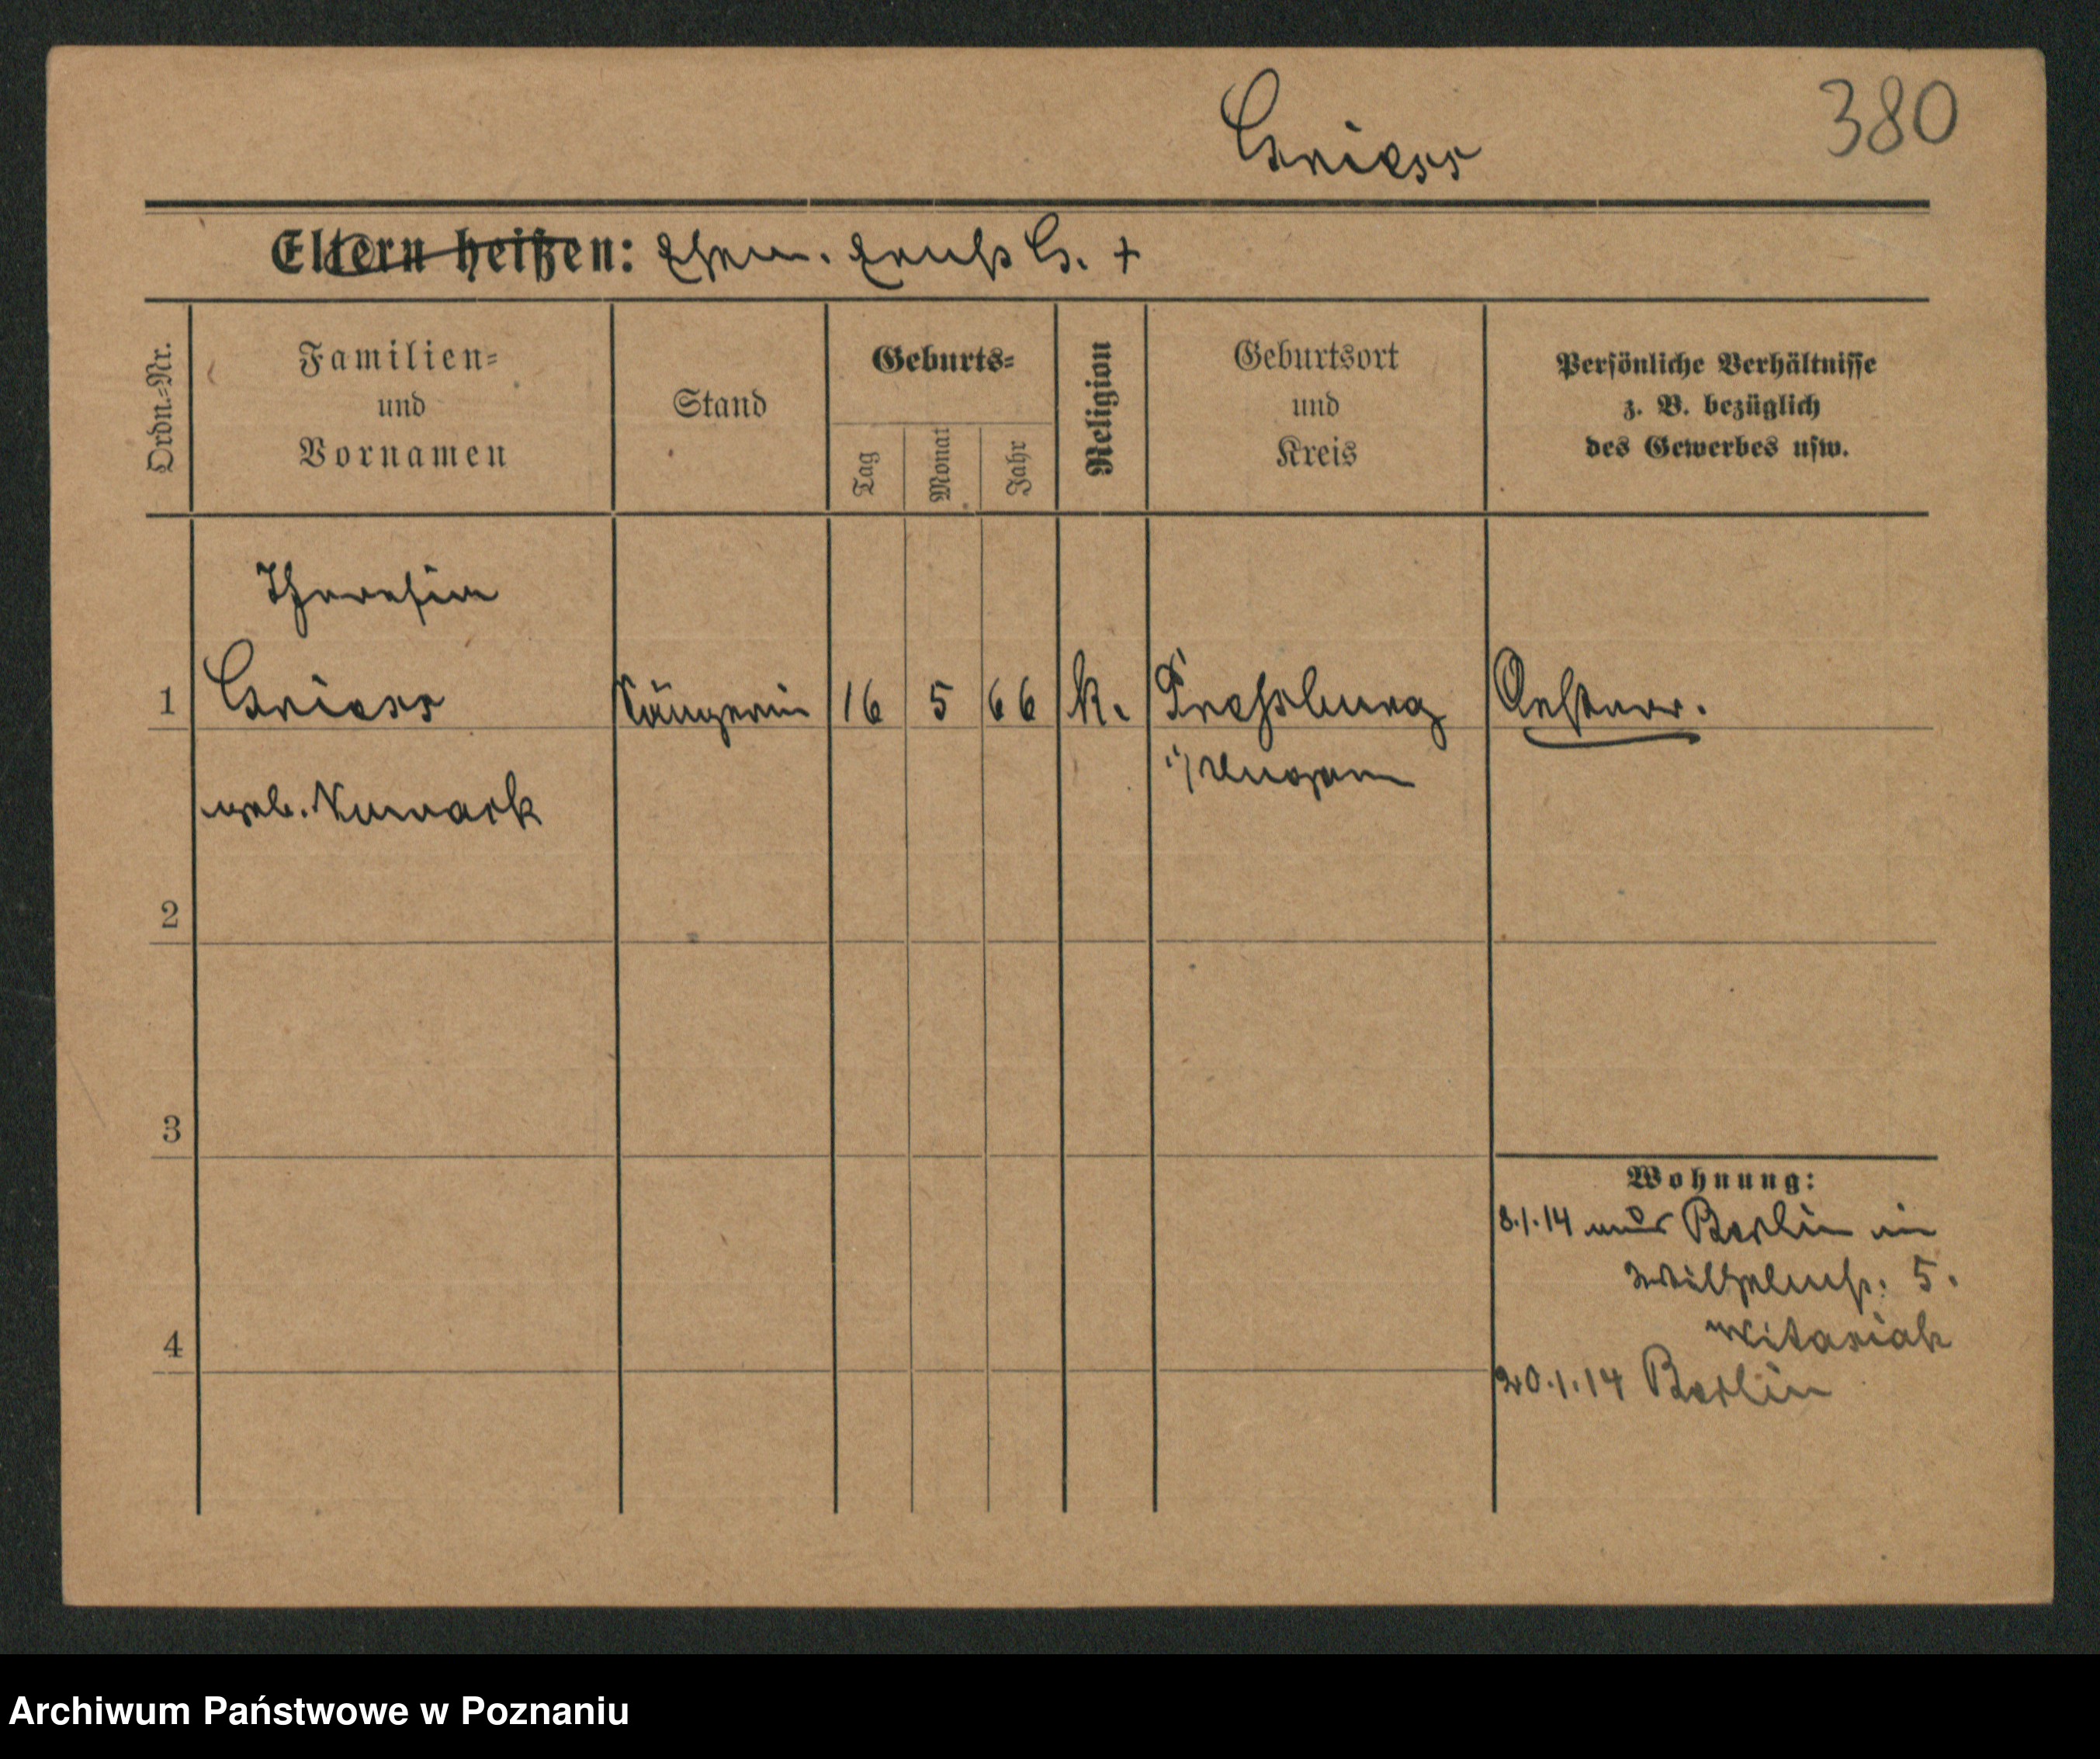 Griess
380
Eltern heißen: Ehem. Ernst G. +
Ordn.-Nr.
Familien-
und
Vornamen
Stand
Geburts-
Tag
Monat
Jahr
Religion
Geburtsort
und
Kreis
Persönliche Verhältnisse
z. B. bezüglich
des Gewerbes usw.
Theresia
1 Griess Sängerin 16 5 66 k. Pressburg Oesterr.
i/ Ungarn
geb. Numark
2
3
4
Wohnung:
8.1.14 aus Berlin in
Wilhelmstr. 5.
Witasiak
20.1.14 Berlin
Archiwum Państwowe w Poznaniu